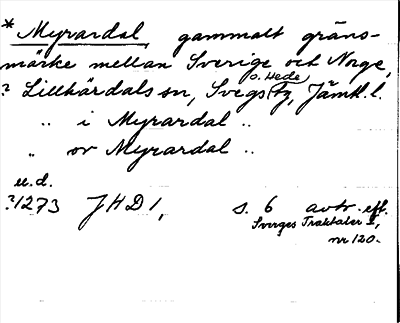 * Myrardal gammalt gräns-
märke mellan Sverige och Norge,
? Lillhärdals sn, Svegs o. Hede tg, Jämtl. l.
.. i Myrardal ..
.. or Myrardal ..
u.d.
?1273 JHD 1, s. 6 avtr. eft.
Sverges Traktater I,
nr 120.